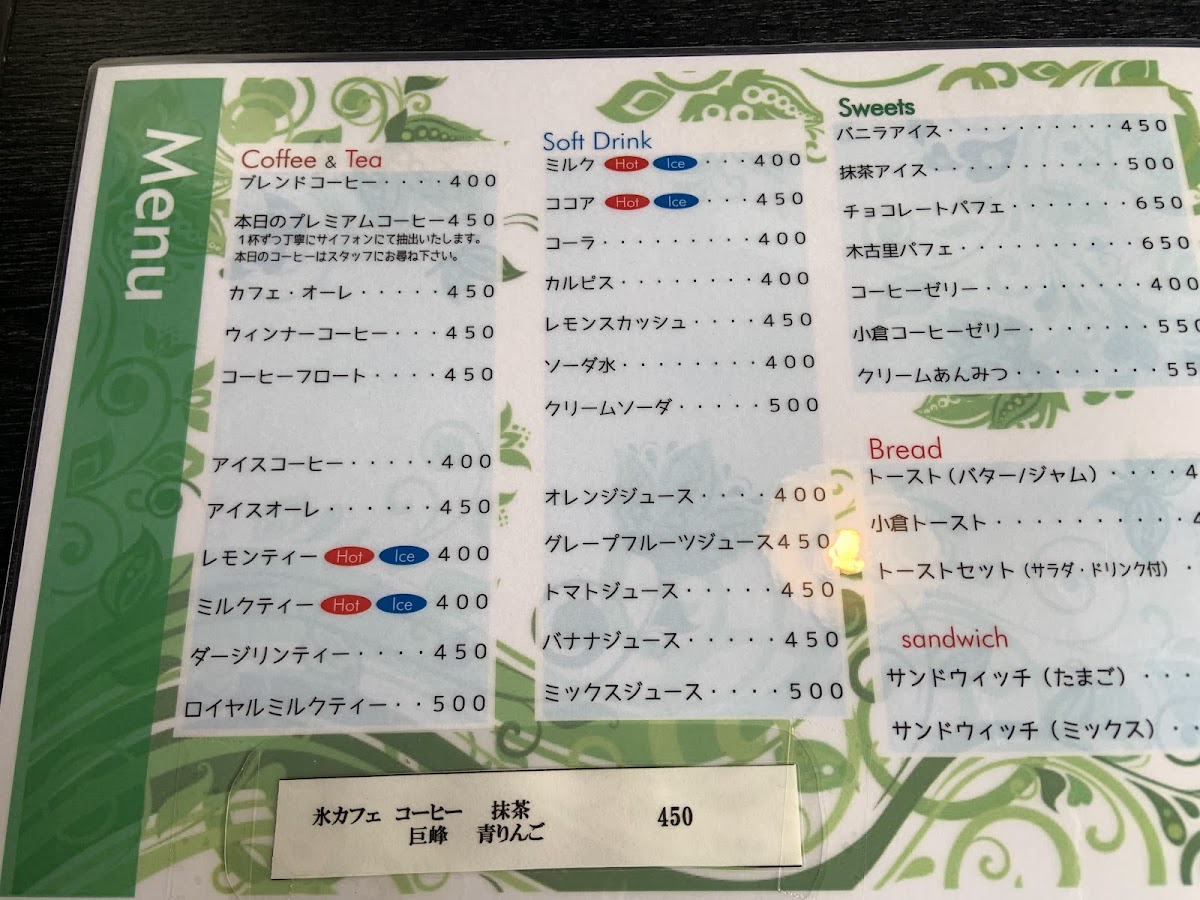 Menu
Coffee & Tea
ブレンドコーヒー・・・・400
本日のプレミアムコーヒー450
1杯ずつ丁寧にサイフォンにて抽出いたします。
本日のコーヒーはスタッフにお尋ね下さい。
カフェ・オーレ・・・・・450
ウィンナーコーヒー・・・450
コーヒーフロート・・・・450
アイスコーヒー・・・・・400
アイスオーレ・・・・・・450
レモンティー Hot Ice 400
ミルクティー Hot Ice 400
ダージリンティー・・・・450
ロイヤルミルクティー・・500
Soft Drink
ミルク Hot Ice ・・・400
ココア Hot Ice ・・・450
コーラ・・・・・・・・・400
カルピス・・・・・・・・400
レモンスカッシュ・・・・450
ソーダ水・・・・・・・・400
クリームソーダ・・・・・500
オレンジジュース・・・・400
グレープフルーツジュース450
トマトジュース・・・・・450
バナナジュース・・・・・450
ミックスジュース・・・・500
Sweets
バニラアイス・・・・・・・・・・450
抹茶アイス・・・・・・・・・・・500
チョコレートパフェ・・・・・・・650
木古里パフェ・・・・・・・・・・650
コーヒーゼリー・・・・・・・・・400
小倉コーヒーゼリー・・・・・・・550
クリームあんみつ・・・・・・・・55
Bread
トースト(バター/ジャム)・・・・4
小倉トースト・・・・・・・・・・4
トーストセット(サラダ・ドリンク付)・
sandwich
サンドウィッチ(たまご)・・・
サンドウィッチ(ミックス)・・
氷カフェ コーヒー 抹茶 450
巨峰 青りんご